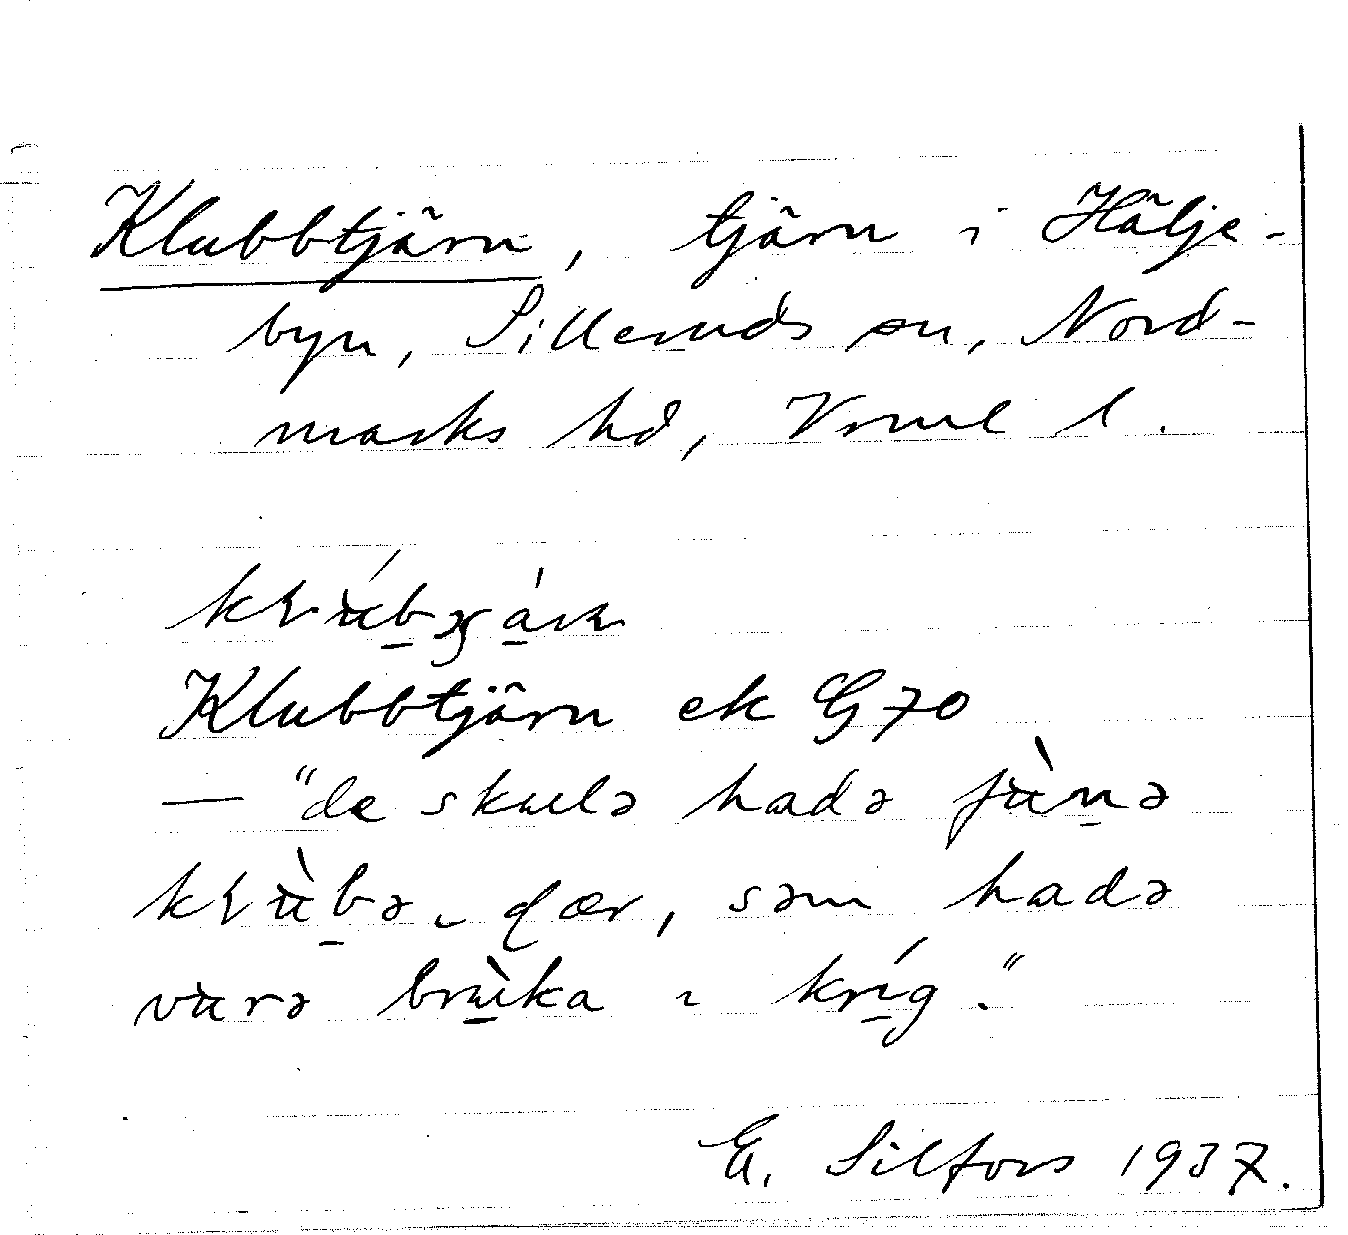 Klubbtjärn, tjärn i Hälje-
byn, Silleruds sn, Nord-
marks hd, Vrml l.
Klubbtjärn ek G70
— "de skulə hadə fùnə
som hadə
varə brùka ı kríg."
E. Silfors 1937.